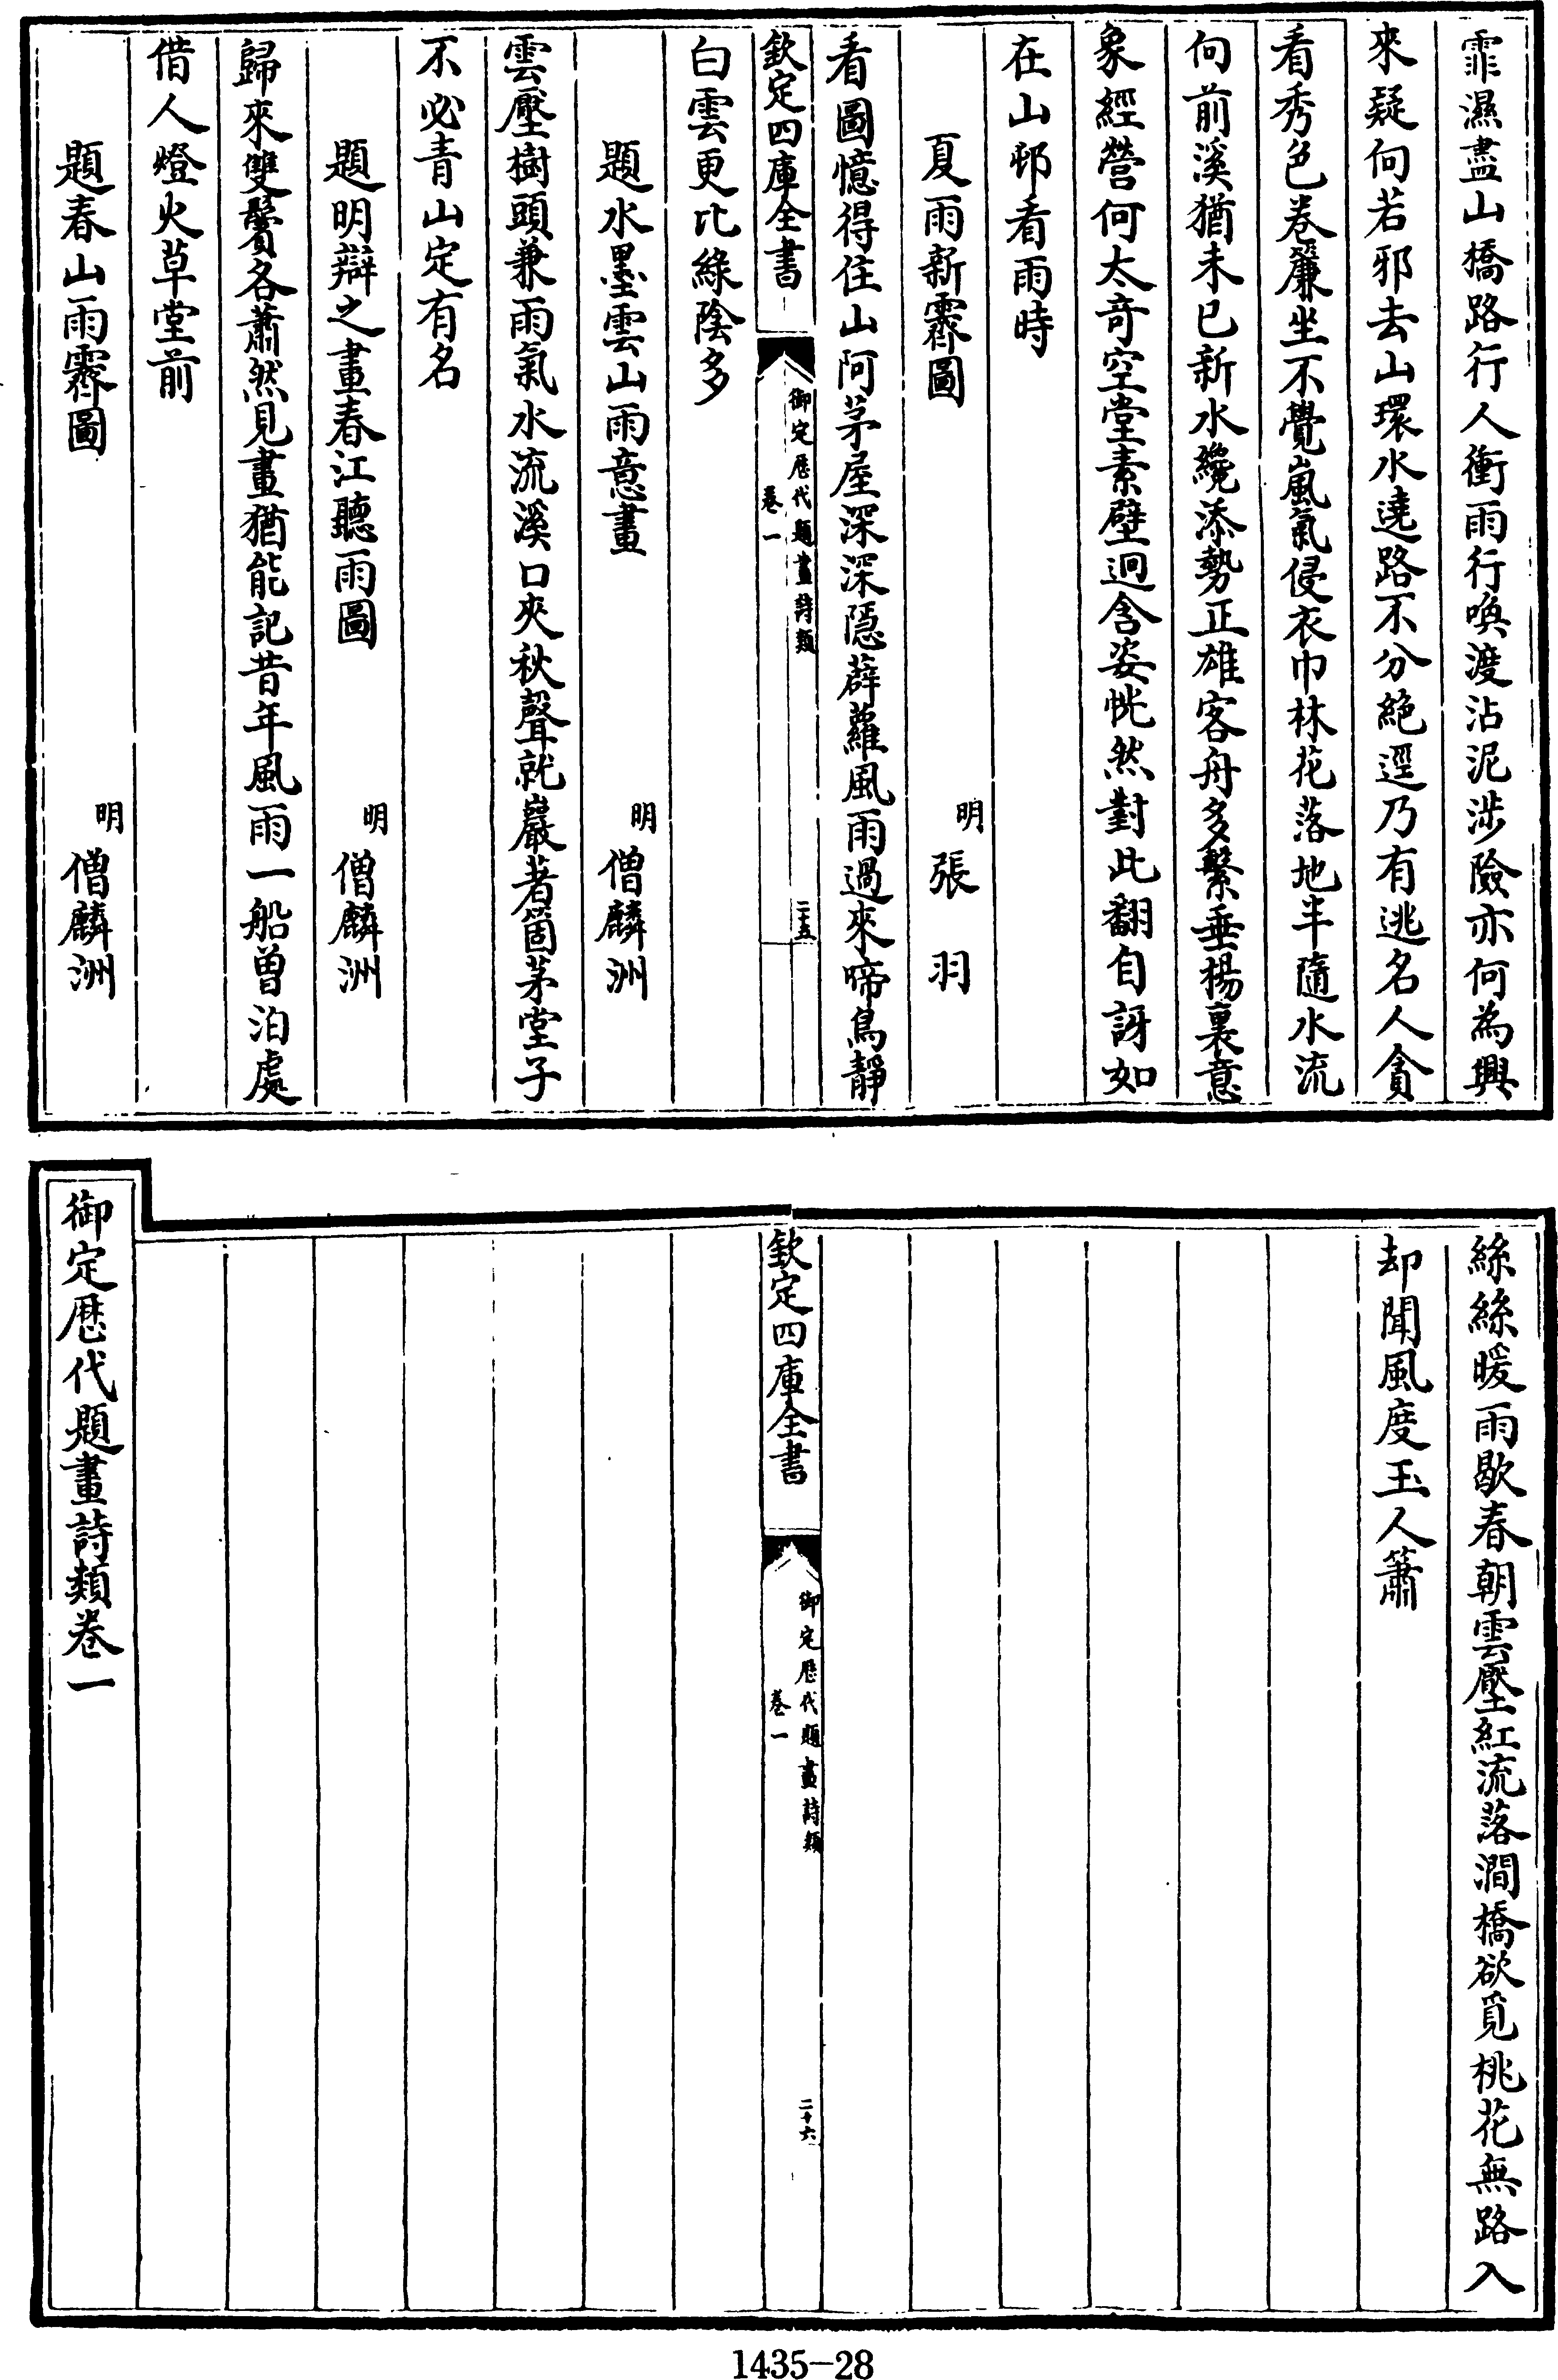 霏濕盡山橋路行人衝雨行喚渡沾泥涉險亦何為興
來疑向若邪去山環水遶路不分絶逕乃有逃名人貪
看秀色卷簾坐不覺嵐氣侵衣巾林花落地半隨水流
向前溪猶未已新水纔添勢正雄客舟多繫垂楊裏意
象經營何太奇空堂素壁迥含姿恍然對此翻自訝如
在山邨看雨時
夏雨新霽圖 明 張羽
看圖憶得住山阿茅屋深深隱薜蘿風雨過來啼鳥靜
欽定四庫全書
御定歷代題畫詩類
卷一
二十五
白雲更比綠陰多
題水墨雲山雨意畫 明 僧麟洲
雲壓樹頭兼雨氣水流溪口夾秋聲就巖著箇茅堂子
不必青山定有名
題明辯之畫春江聽雨圖 明 僧麟洲
歸來雙鬢各蕭然見畫猶能記昔年風雨一船曾泊處
借人燈火草堂前
題春山雨霽圖 明 僧麟洲
絲絲暖雨歇春朝雲壓紅流落澗橋欲覓桃花無路入
却聞風度玉人簫
欽定四庫全書
御定歷代題畫詩類
卷一
二十六
御定歷代題畫詩類卷一
1435-28